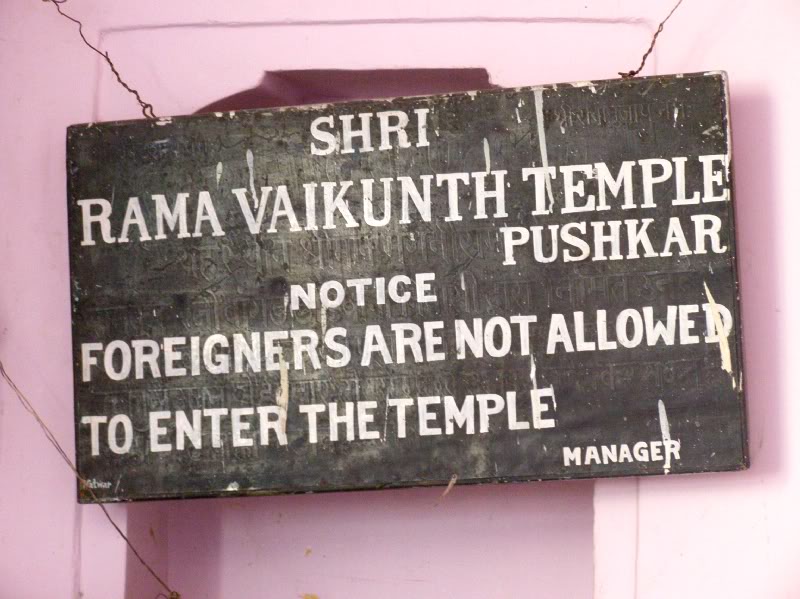 SHRI
RAMA VAIKUNTH TEMPLE
PUSHKAR
NOTICE
FOREIGNERS ARE NOT ALLOWED
TO ENTER THE TEMPLE
MANAGER